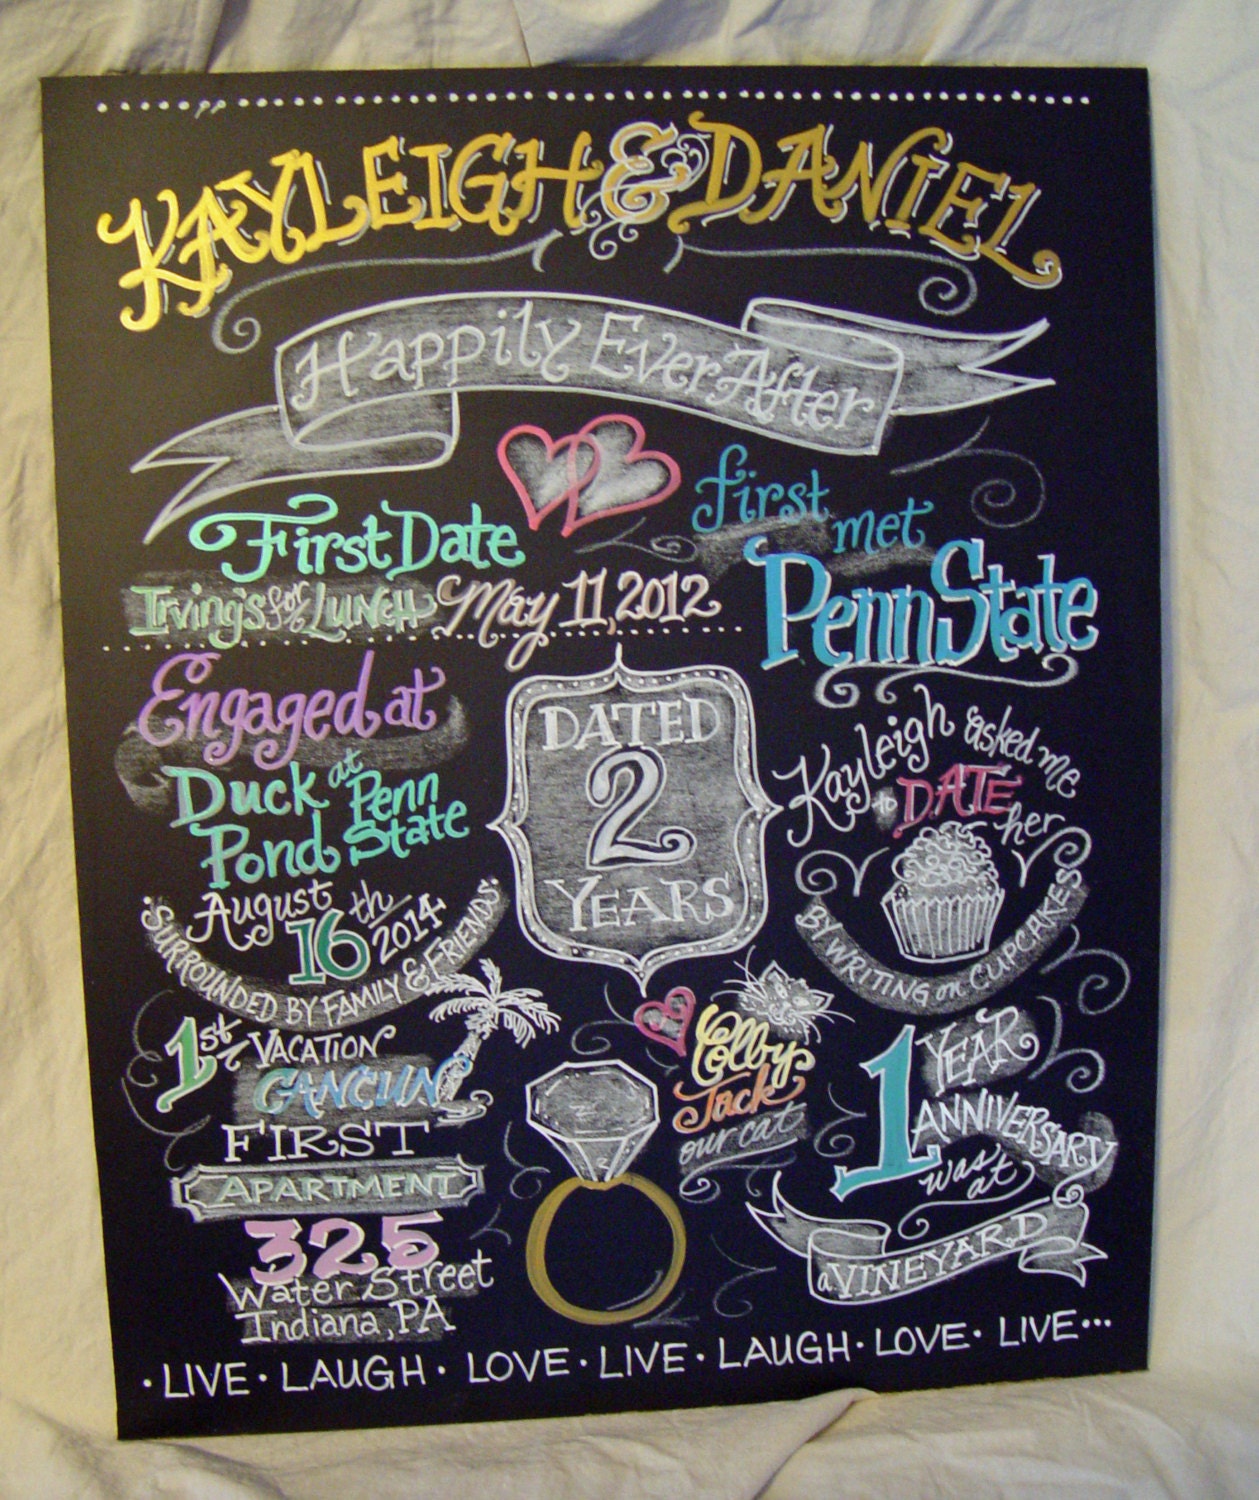 KAYLEIGH & DANIEL
Happily Ever After
First Date
Irving's for LUNCH May 11, 2012
first
met
Penn State
Engaged at
Duck at Penn
Pond State
August
16th 2014
SURROUNDED BY FAMILY & FRIENDS
DATED
2
YEARS
Kayleigh asked me
to DATE her
BY WRITING on CUPCAKES
1st VACATION
CANCUN
FIRST
APARTMENT
325
Water Street
Indiana, PA
Colby
Jack
our cat
1 YEAR
ANNIVERSARY
was
at
a VINEYARD
• LIVE • LAUGH • LOVE • LIVE • LAUGH • LOVE • LIVE •••